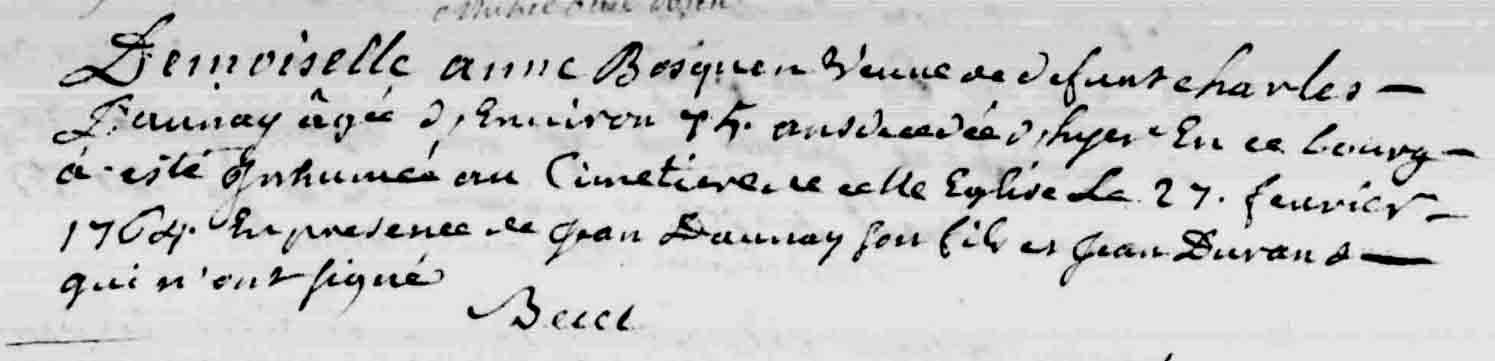 Demoiselle anne Bosquen Veuve de defunt charles -
Daunay âgée d'Environ 75. ans decedée d'hyer En ce bourg -
a esté Inhumée au Cimetiere de cette Eglise Le 27. fevrier -
1764. En presence de jean Daunay son fils et jean Durand -
qui n'ont signé